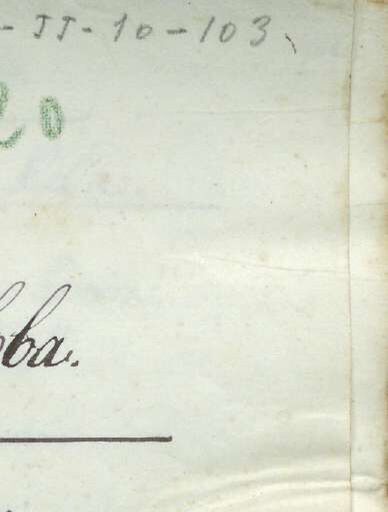 -II-10-103
20
ba.